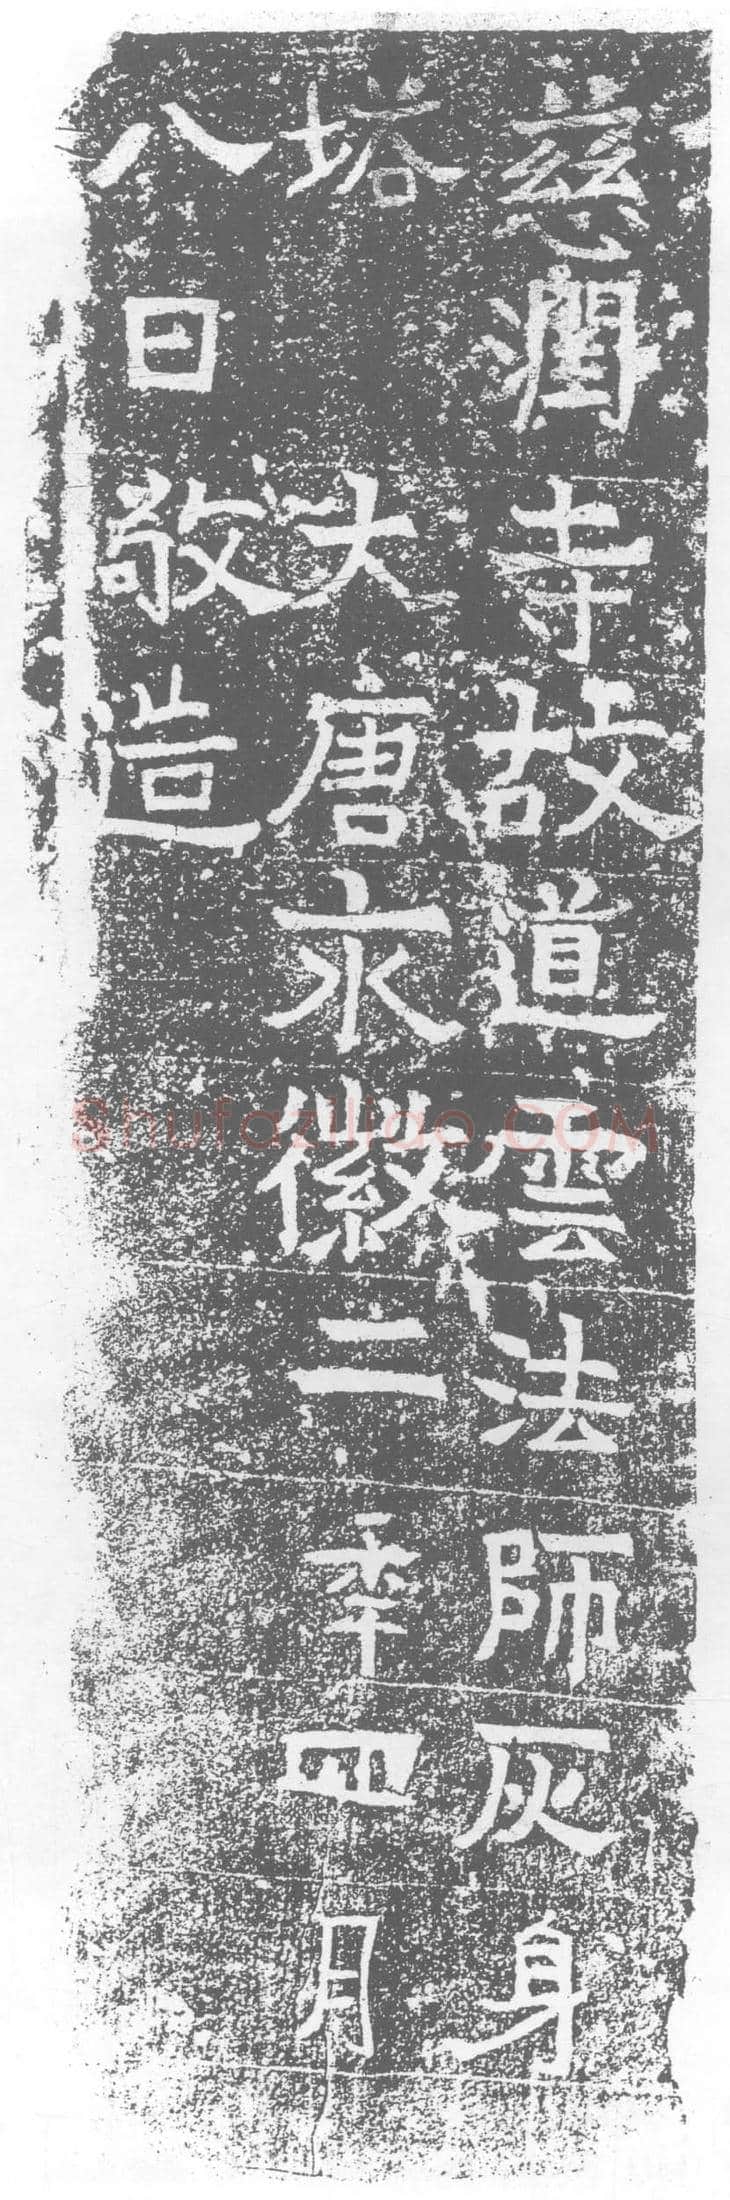 慈潤寺故道雲法師灰身
塔　大唐永徽二年四月
八日敬造
Shufaziliao.COM